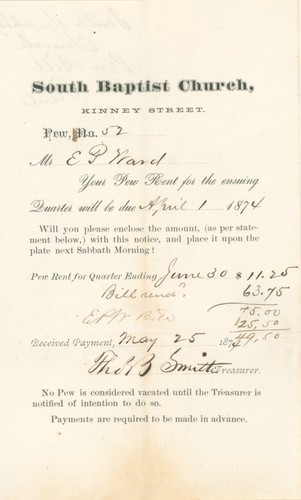 South Baptist Church,
KINNEY STREET.
Pew, No. 52
Mr E P Ward
Your Pew Rent for the ensuing
Quarter will be due April 1 1874
Will you please enclose the amount, (as per state-
ment below,) with this notice, and place it upon the
plate next Sabbath Morning!
Pew Rent for Quarter Ending June 30 $ 11.25
Bill rend? 63.75
75.00
E P W Bill 25,50
49,50
Received Payment, May 25 187
Tho B Smith Treasurer.
No Pew is considered vacated until the Treasurer is
notified of intention to do so.
Payments are required to be made in advance.